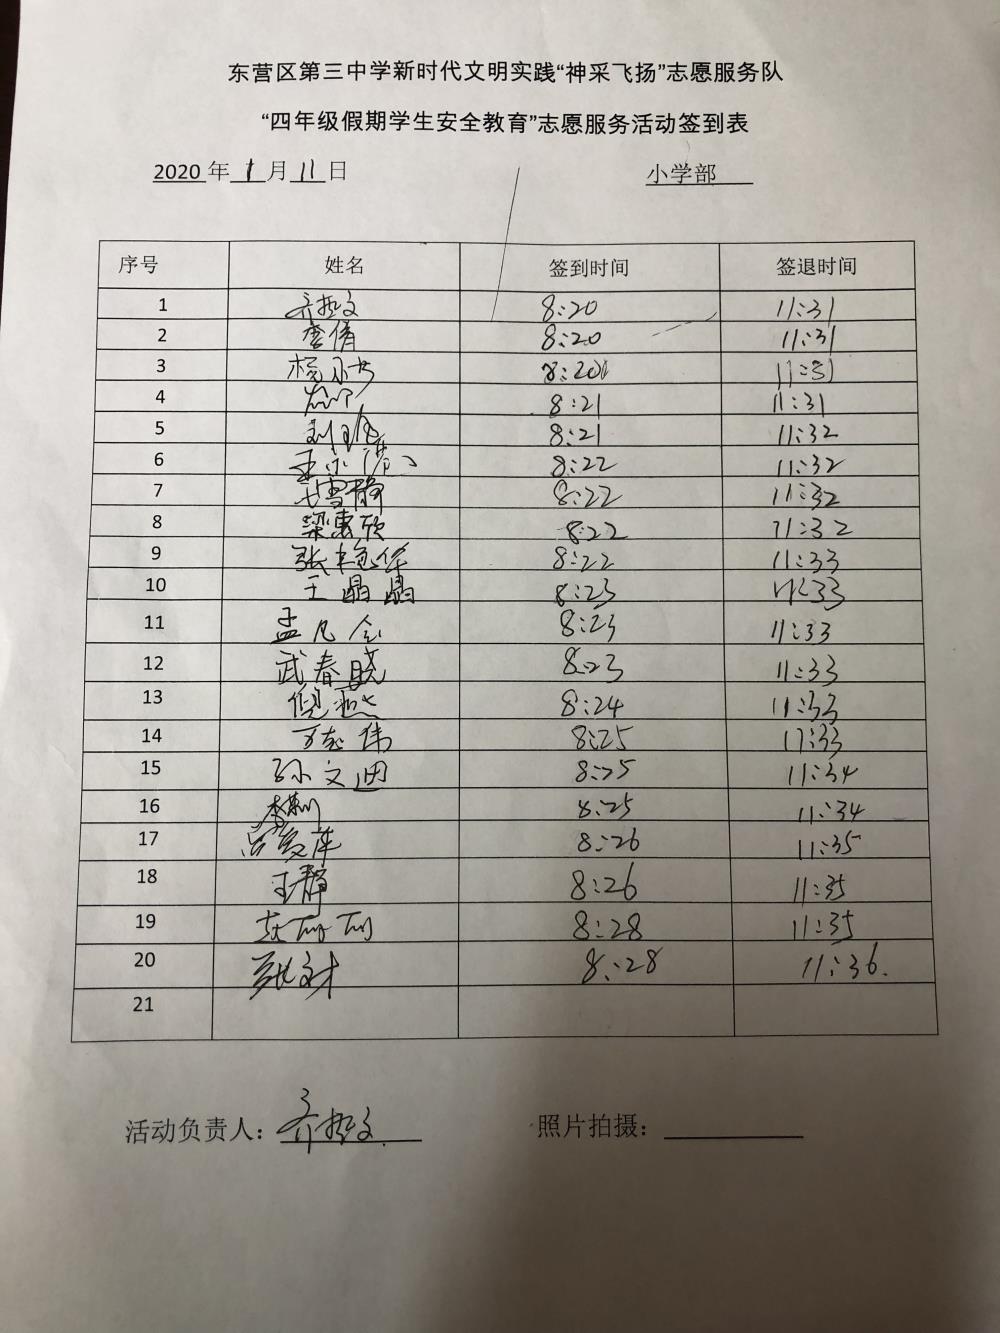 东营区第三中学新时代文明实践“神采飞扬”志愿服务队
“四年级假期学生安全教育”志愿服务活动签到表
2020年1月11日 小学部
序号 姓名 签到时间 签退时间
1 8:20 11:31
2 李倩 8:20 11:31
3 8:20 11:31
4 8:21 11:31
5 8:21 11:32
6 8:22 11:32
7 8:22 11:32
8 梁惠欣 8:22 11:32
9 张艳华 8:22 11:33
10 王晶晶 8:23 11:33
11 孟凡会 8:23 11:33
12 武春晓 8:23 11:33
13 倪燕 8:24 11:33
14 8:25 11:33
15 孙文迪 8:25 11:34
16 8:25 11:34
17 8:26 11:35
18 王静 8:26 11:35
19 8:28 11:35
20 8:28 11:36.
21
活动负责人： 照片拍摄：